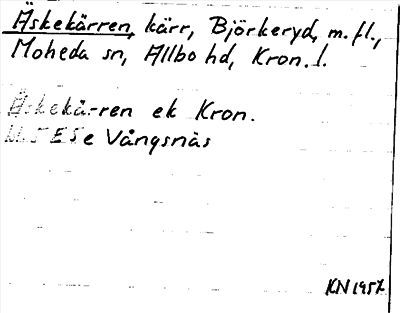 Äskekärren, kärr, Björkeryd, m.fl.,
Moheda sn, Allbo hd, Kron. l.
Äskekärren ek Kron.
ESe Vångsnäs
KN 1957